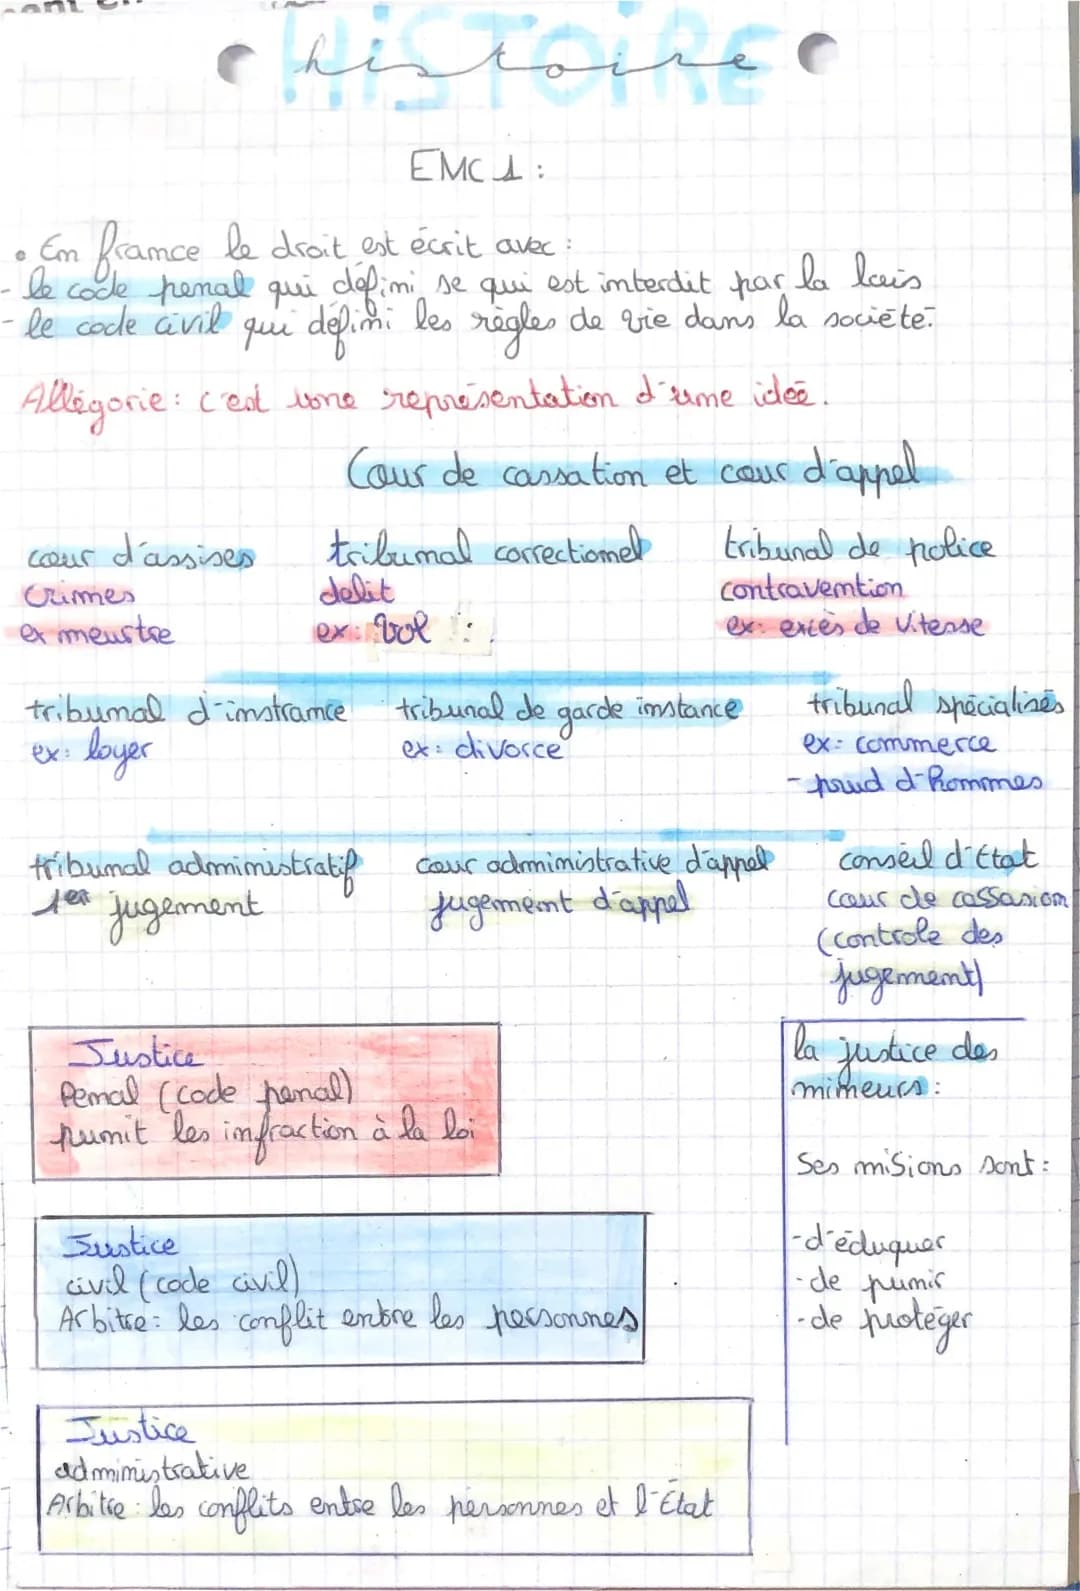 HISTOIRE
histoire
EMC 1 :
• En france le droit est écrit avec :
- le code penal qui défini se qui est interdit par la lois
- le code civil qui défini les règles de vie dans la société.
Allégorie : c'est une représentation d'une idée.
Cour de cassation et cour d'appel
cour d'assises tribunal correctionel tribunal de police
crimes delit contravention
ex meurtre ex : Vol ex: excès de vitesse
tribunal d'instrance tribunal de garde instance tribunal spécialisés
ex : loyer ex : divorce ex : commerce
- prud d'hommes
tribunal administratif cour administrative d'appel conseil d'Etat
1er jugement jugement d'appel cour de cassasion
(controle des
jugement)
Justice
Penal (code penal)
punit les infraction à la loi
la justice des
mineurs :
Ses misions sont :
- d'éduquer
- de punir
- de protéger
Justice
civil (code civil)
Arbitre : les conflit entre les personnes
Justice
administrative
Arbitre : les conflits entre les personnes et l'État